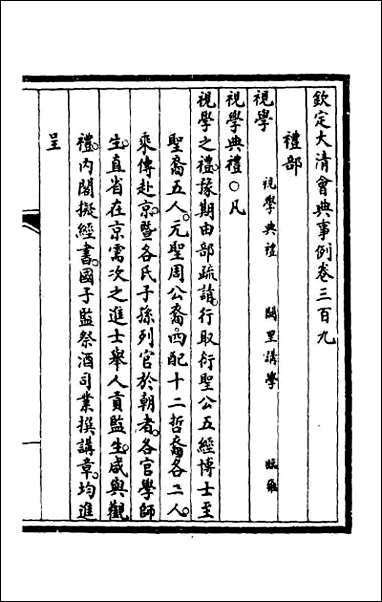 欽定大清會典事例卷三百九
禮部
視學 視學典禮 闕里講學 臨雍
視學典禮○凡
視學之禮豫期由部疏請行取衍聖公五經博士至
聖裔五人元聖周公裔西配十二哲裔各二人
乘傳赴京曁各氏子孫列官於朝者各官學師
生直省在京需次之進士舉人貢監生咸與觀
禮內閣擬經書國子監祭酒司業撰講章均進
呈